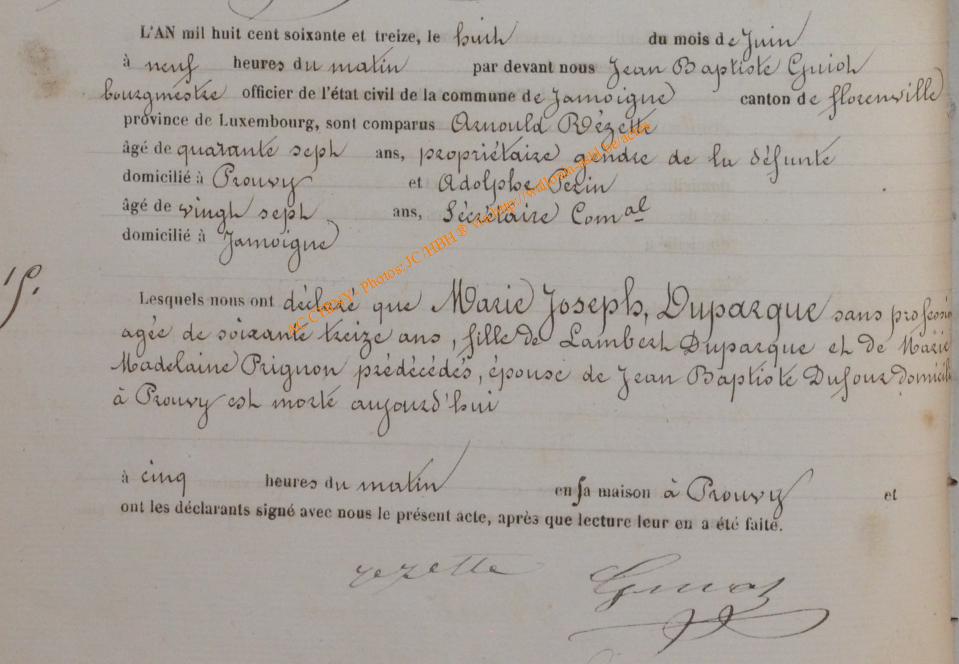 L'AN mil huit cent soixante et treize, le huit du mois de Juin
à neuf heures du matin par devant nous Jean Baptiste Guiot
bourgmestre officier de l'état civil de la commune de Jamoigne canton de florenville
province de Luxembourg, sont comparus Arnould Rézette
âgé de quarante sept ans, propriétaire gendre de la défunte
domicilié à Prouvy et Adolphe Perin
âgé de vingt sept ans, Sécrétaire Comal
domicilié à Jamoigne
15.
Lesquels nous ont déclaré que Marie Joseph, Duparque sans professio
agée de soixante treize ans, fille de Lambert Duparque et de Marie
Madelaine Prignon prédécédés, épouse de Jean Baptiste Dufour domicilié
à Prouvy est morte aujourd'hui
à cinq heures du matin en sa maison à Prouvy et
ont les déclarants signé avec nous le présent acte, après que lecture leur en a été faite.
rezette Guiot